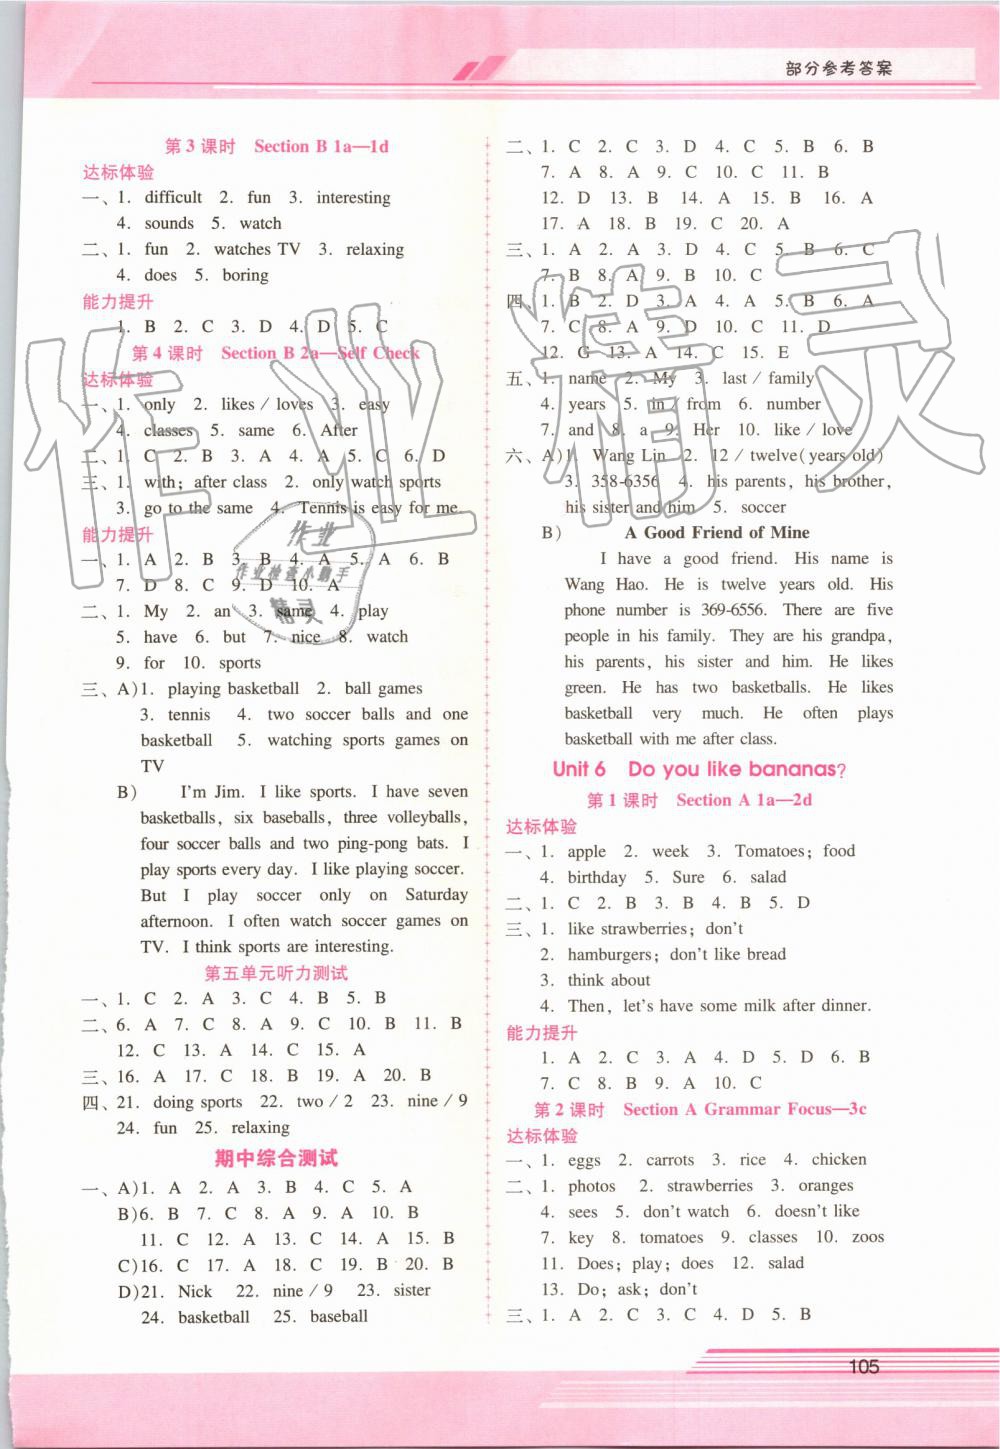 部分参考答案
第3课时 Section B 1a—1d
达标体验
一、1. difficult 2. fun 3. interesting
4. sounds 5. watch
二、1. fun 2. watches TV 3. relaxing
4. does 5. boring
能力提升
1. B 2. C 3. D 4. D 5. C
第4课时 Section B 2a—Self Check
达标体验
一、1. only 2. likes / loves 3. easy
4. classes 5. same 6. After
二、1. C 2. B 3. A 4. A 5. C 6. D
三、1. with; after class 2. only watch sports
3. go to the same 4. Tennis is easy for me.
能力提升
一、1. A 2. B 3. B 4. A 5. A 6. B
7. D 8. C 9. D 10. A
二、1. My 2. an 3. same 4. play
5. have 6. but 7. nice 8. watch
9. for 10. sports
三、A)1. playing basketball 2. ball games
3. tennis 4. two soccer balls and one
basketball 5. watching sports games on
TV
B) I'm Jim. I like sports. I have seven
basketballs, six baseballs, three volleyballs,
four soccer balls and two ping-pong bats. I
play sports every day. I like playing soccer.
But I play soccer only on Saturday
afternoon. I often watch soccer games on
TV. I think sports are interesting.
第五单元听力测试
一、1. C 2. A 3. C 4. B 5. B
二、6. A 7. C 8. A 9. C 10. B 11. B
12. C 13. A 14. C 15. A
三、16. A 17. C 18. B 19. A 20. B
四、21. doing sports 22. two / 2 23. nine / 9
24. fun 25. relaxing
期中综合测试
一、A)1. A 2. A 3. B 4. C 5. A
B)6. B 7. C 8. A 9. A 10. B
11. C 12. A 13. C 14. A 15. B
C)16. C 17. A 18. C 19. B 20. B
D)21. Nick 22. nine / 9 23. sister
24. basketball 25. baseball
二、1. C 2. C 3. D 4. C 5. B 6. B
7. A 8. A 9. C 10. C 11. B
12. D 13. B 14. A 15. B 16. A
17. A 18. B 19. C 20. A
三、1. A 2. A 3. D 4. C 5. B 6. C
7. B 8. A 9. B 10. C
四、1. B 2. D 3. A 4. A 5. B 6. A
7. C 8. A 9. D 10. C 11. D
12. G 13. A 14. C 15. E
五、1. name 2. My 3. last / family
4. years 5. in / from 6. number
7. and 8. a 9. Her 10. like / love
六、A)1. Wang Lin 2. 12 / twelve(years old)
3. 358-6356 4. his parents, his brother,
his sister and him 5. soccer
B) A Good Friend of Mine
I have a good friend. His name is
Wang Hao. He is twelve years old. His
phone number is 369-6556. There are five
people in his family. They are his grandpa,
his parents, his sister and him. He likes
green. He has two basketballs. He likes
basketball very much. He often plays
basketball with me after class.
Unit 6 Do you like bananas?
第1课时 Section A 1a—2d
达标体验
一、1. apple 2. week 3. Tomatoes; food
4. birthday 5. Sure 6. salad
二、1. C 2. B 3. B 4. B 5. D
三、1. like strawberries; don't
2. hamburgers; don't like bread
3. think about
4. Then, let's have some milk after dinner.
能力提升
1. A 2. C 3. A 4. D 5. D 6. B
7. C 8. B 9. A 10. C
第2课时 Section A Grammar Focus—3c
达标体验
一、1. eggs 2. carrots 3. rice 4. chicken
二、1. photos 2. strawberries 3. oranges
4. sees 5. don't watch 6. doesn't like
7. key 8. tomatoes 9. classes 10. zoos
11. Does; play; does 12. salad
13. Do; ask; don't
三、1. A 2. C 3. C 4. D 5. B
105
作业精灵
作业
作业检查小助手
精灵